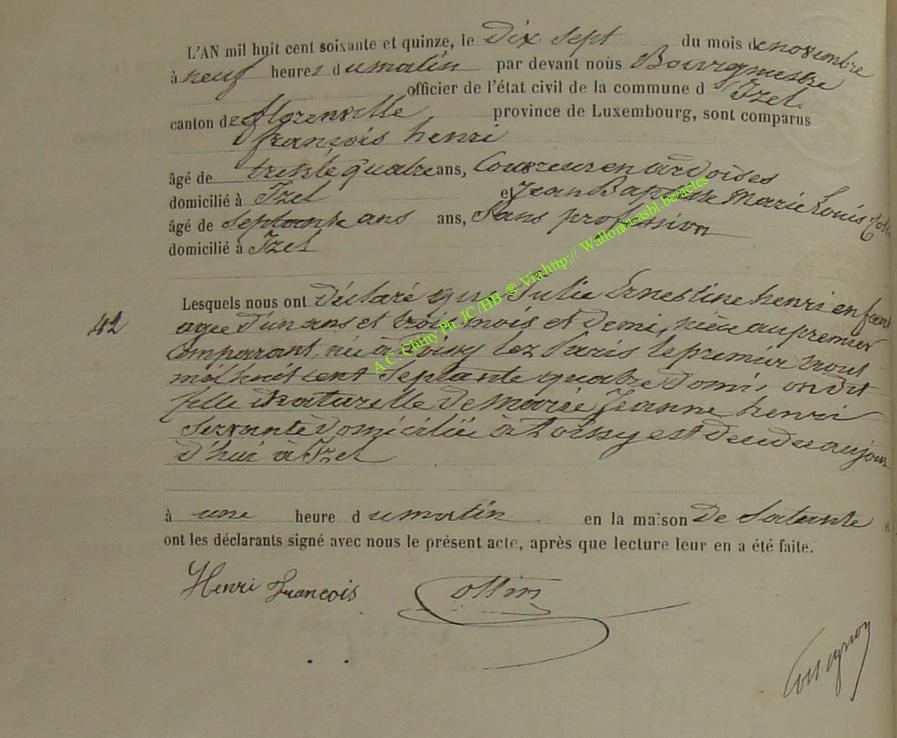 L'AN mil huit cent soixante et quinze, le dix sept du mois de novembre
à neuf heures du matin par devant nous Bourgmestre
officier de l'état civil de la commune d Izel
canton de florenville province de Luxembourg, sont comparus
françois henri
âgé de trente quatre ans, Couvreur en ardoises
domicilié à Izel et Jean Baptiste Marie Louis
âgé de septante ans ans, Sans profession
domicilié à Izel
42
Lesquels nous ont déclaré que Julie Ernestine henri enfant
agée d'un ans et trois mois et demi, nièce au premier
comparant née à lez Paris le premier aout
mil huit cent septante quatre on dit
fille naturelle de marie Jeanne henri
servante domiciliée à est décédée aujour
d'hui à Izel
à une heure du matin en la maison de sa tante e
ont les déclarants signé avec nous le présent acte, après que lecture leur en a été faite.
Henri François Collin
A C- Chiny Ph. JC/HB @ Via http:// Wallonia-asbl.be:actes